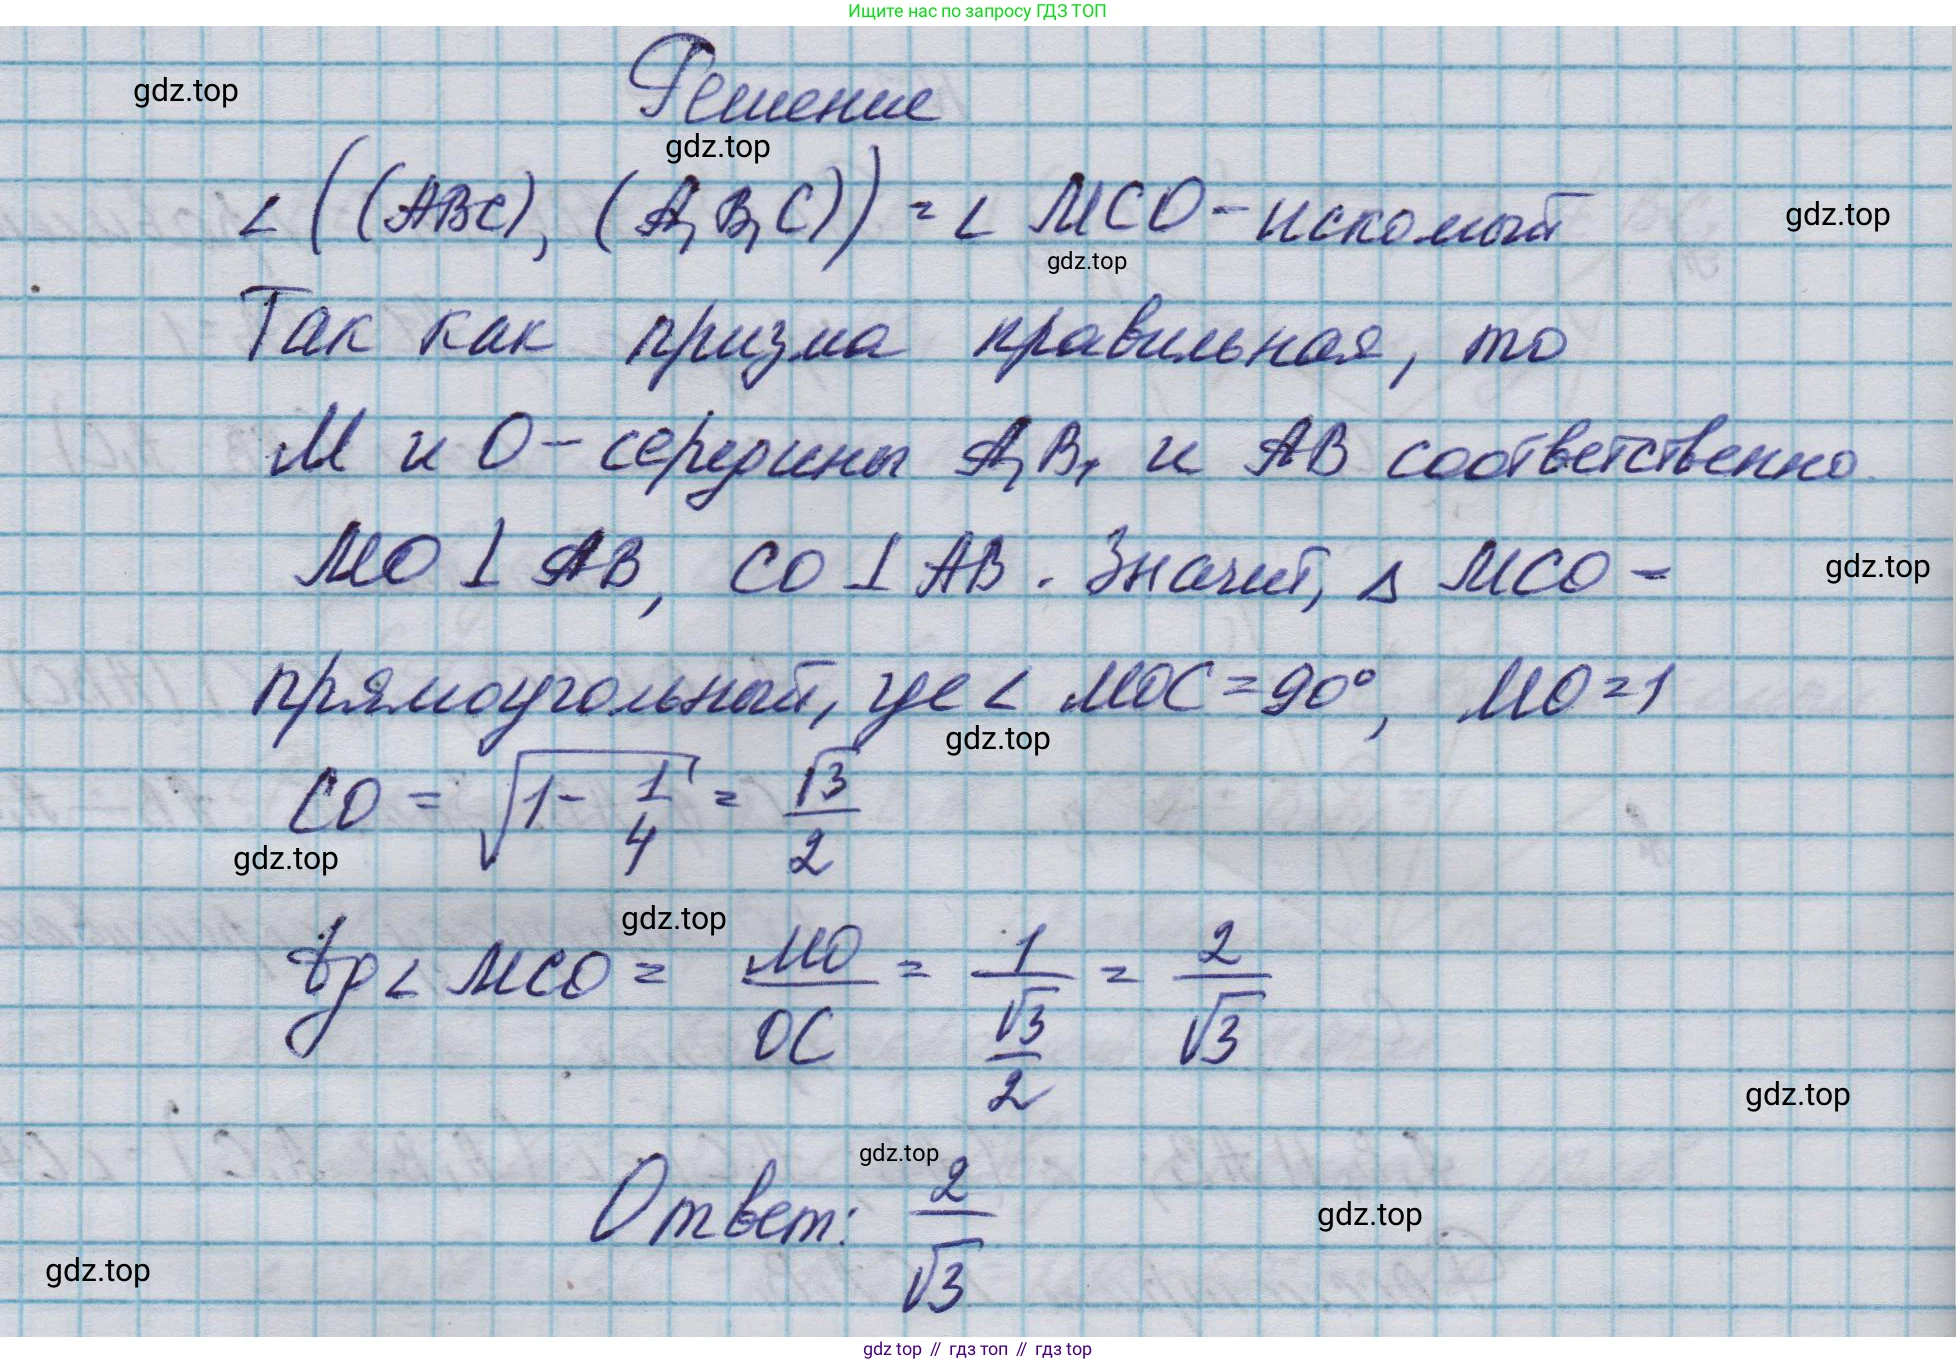 Ищите нас по запросу ГДЗ ТОП
Решение
gdz.top
gdz.top
∠((ABC), (A₁B₁C)) = ∠ MCO - искомый
gdz.top
gdz.top
Так как призма правильная, то
M и O - середины A₁B₁ и AB соответственно.
MO ⊥ AB, CO ⊥ AB. Значит, △ MCO -
gdz.top
прямоугольный, где ∠ MOC = 90°, MO = 1
gdz.top
CO = √(1 - 1/4) = √3/2
gdz.top
gdz.top
tg∠ MCO = MO/OC = 1/(√3/2) = 2/√3
gdz.top
gdz.top
Ответ: 2/√3
gdz.top
gdz.top
gdz top // гдз топ // гдз top